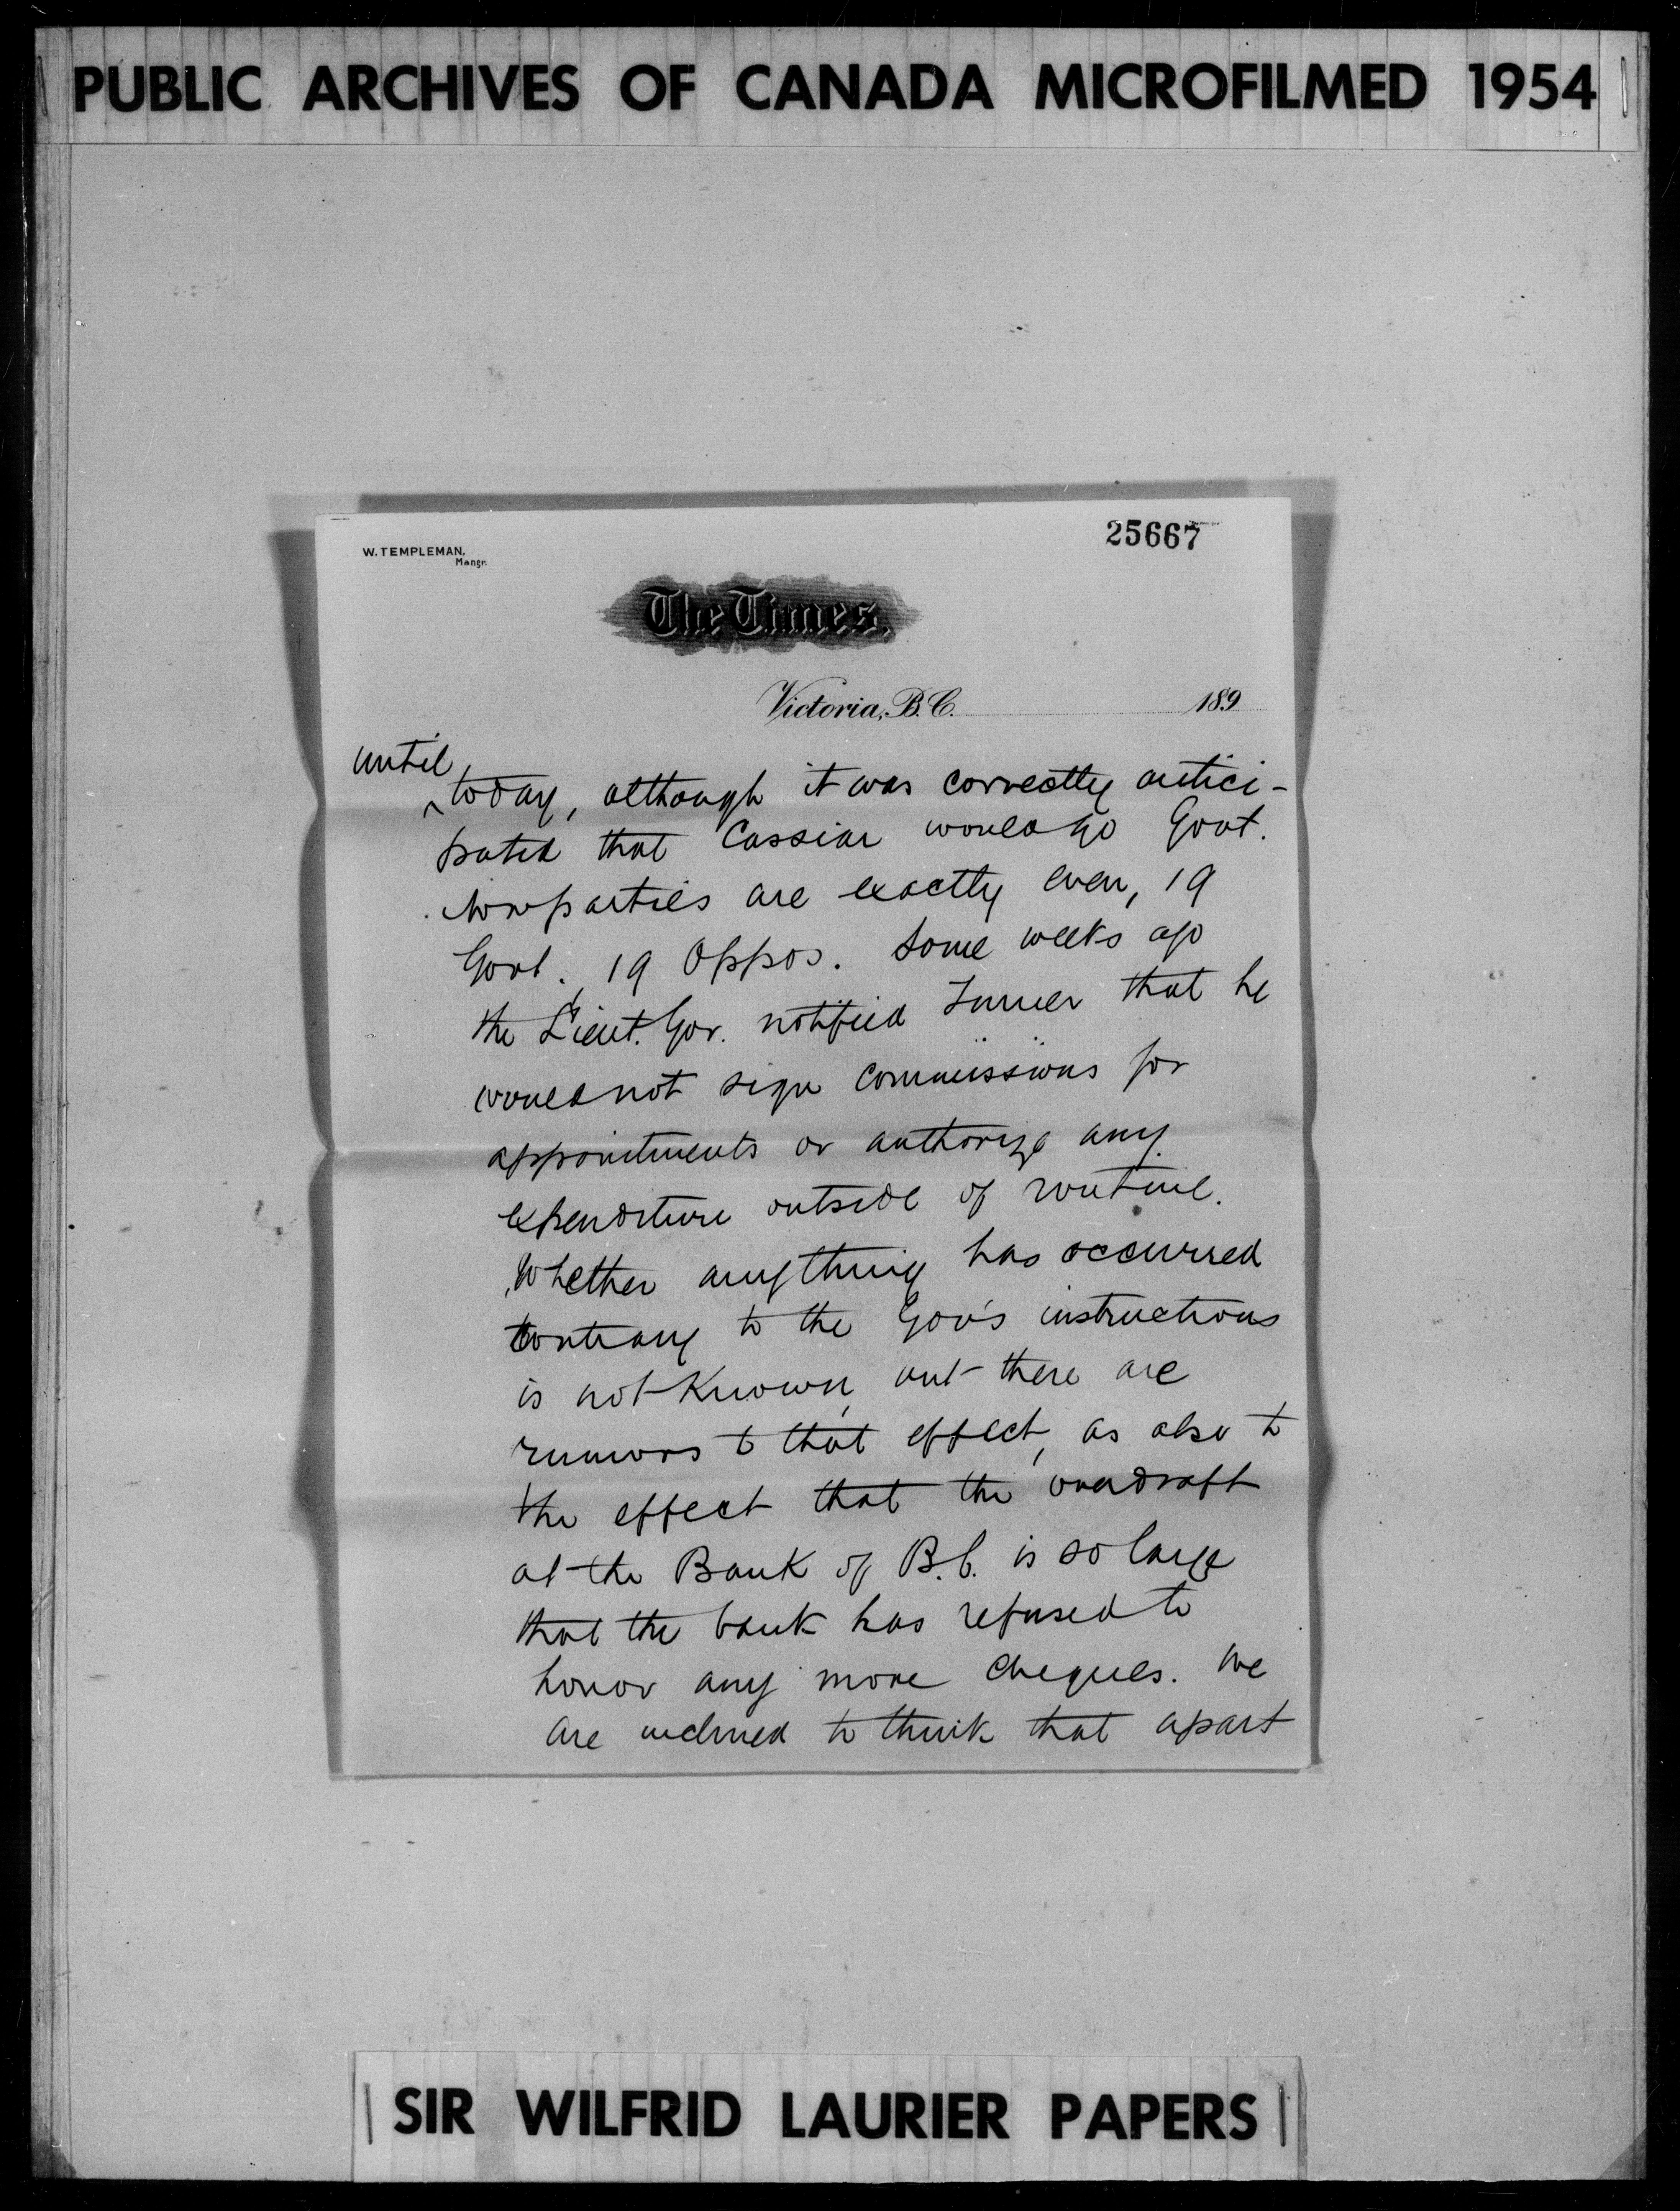 PUBLIC ARCHIVES OF CANADA MICROFILMED 1954
25667
W. TEMPLEMAN,
Mangr.
The Times.
Victoria, B.C. 189
until
today, although it was correctly antici-
pated that Cassiar would go Govt.
Now parties are exactly even, 19
Govt., 19 Oppos. Some weeks ago
the Lieut. Gov. notified Turner that he
would not sign commissions for
appointments or authorize any
expenditure outside of routine.
Whether anything has occurred
contrary to the Gov's instructions
is not known, but there are
rumors to that effect, as also to
the effect that the overdraft
at the Bank of B.C. is so large
that the bank has refused to
honor any more cheques. We
are inclined to think that apart
SIR WILFRID LAURIER PAPERS